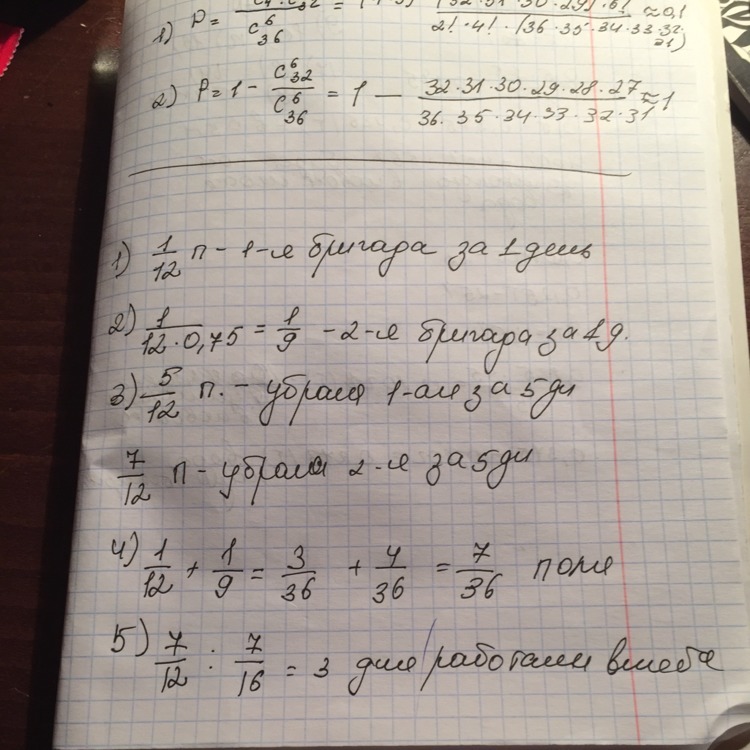 1) P = C₃₂ / C⁶₃₆ = 32·31·30·29)·6! / 2!·4!·(36·35·34·33·32·31) ≈ 0,1
2) P = 1 - C⁶₃₂ / C⁶₃₆ = 1 — 32·31·30·29·28·27 / 36·35·34·33·32·31 ≈ 1
1) 1/12 п - 1-я бригада за 1 день
2) 1/12·0,75 = 1/9 - 2-я бригада за 1 д.
3) 5/12 п. - убрала 1-ая за 5 дн
7/12 п - убрала 2-я за 5 дн
4) 1/12 + 1/9 = 3/36 + 4/36 = 7/36 поля
5) 7/12 : 7/16 = 3 дня работали вместе